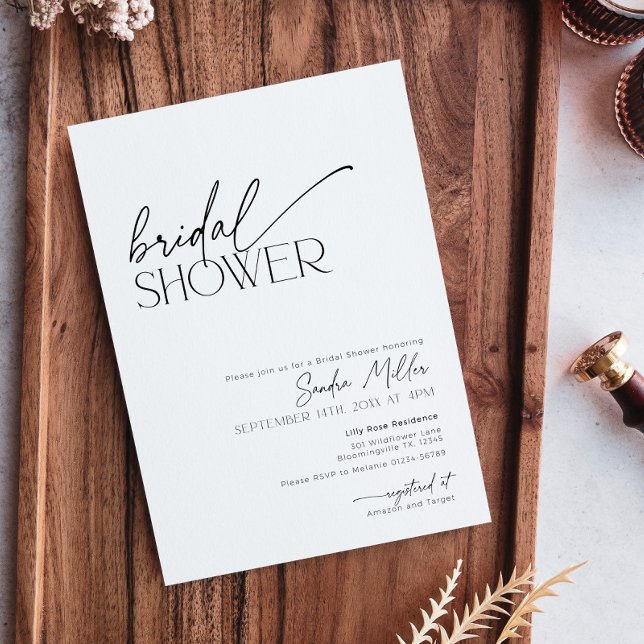 bridal
SHOWER
Please join us for a Bridal Shower honoring
Sandra Miller
SEPTEMBER 14TH, 20XX AT 4PM
Lilly Rose Residence
301 Wildflower Lane
Bloomingville TX, 12345
Please RSVP to Melanie 01234-56789
registered at
Amazon and Target